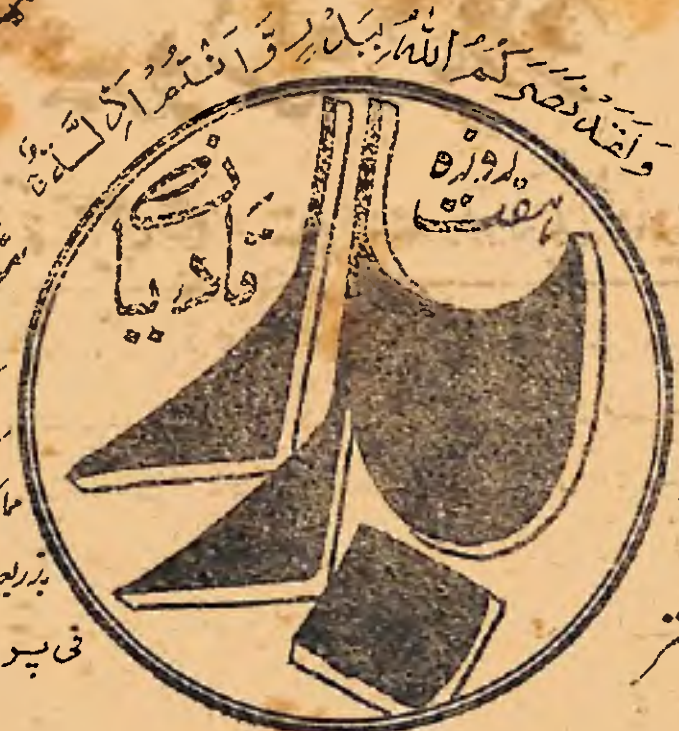 وَلَقَدْ نَصَرَكُمُ اللّٰهُ بِبَدْرٍ وَّاَنْتُمْ اَذِلَّةٌ
ہفت روزہ
بدر
قادیان
فی پر